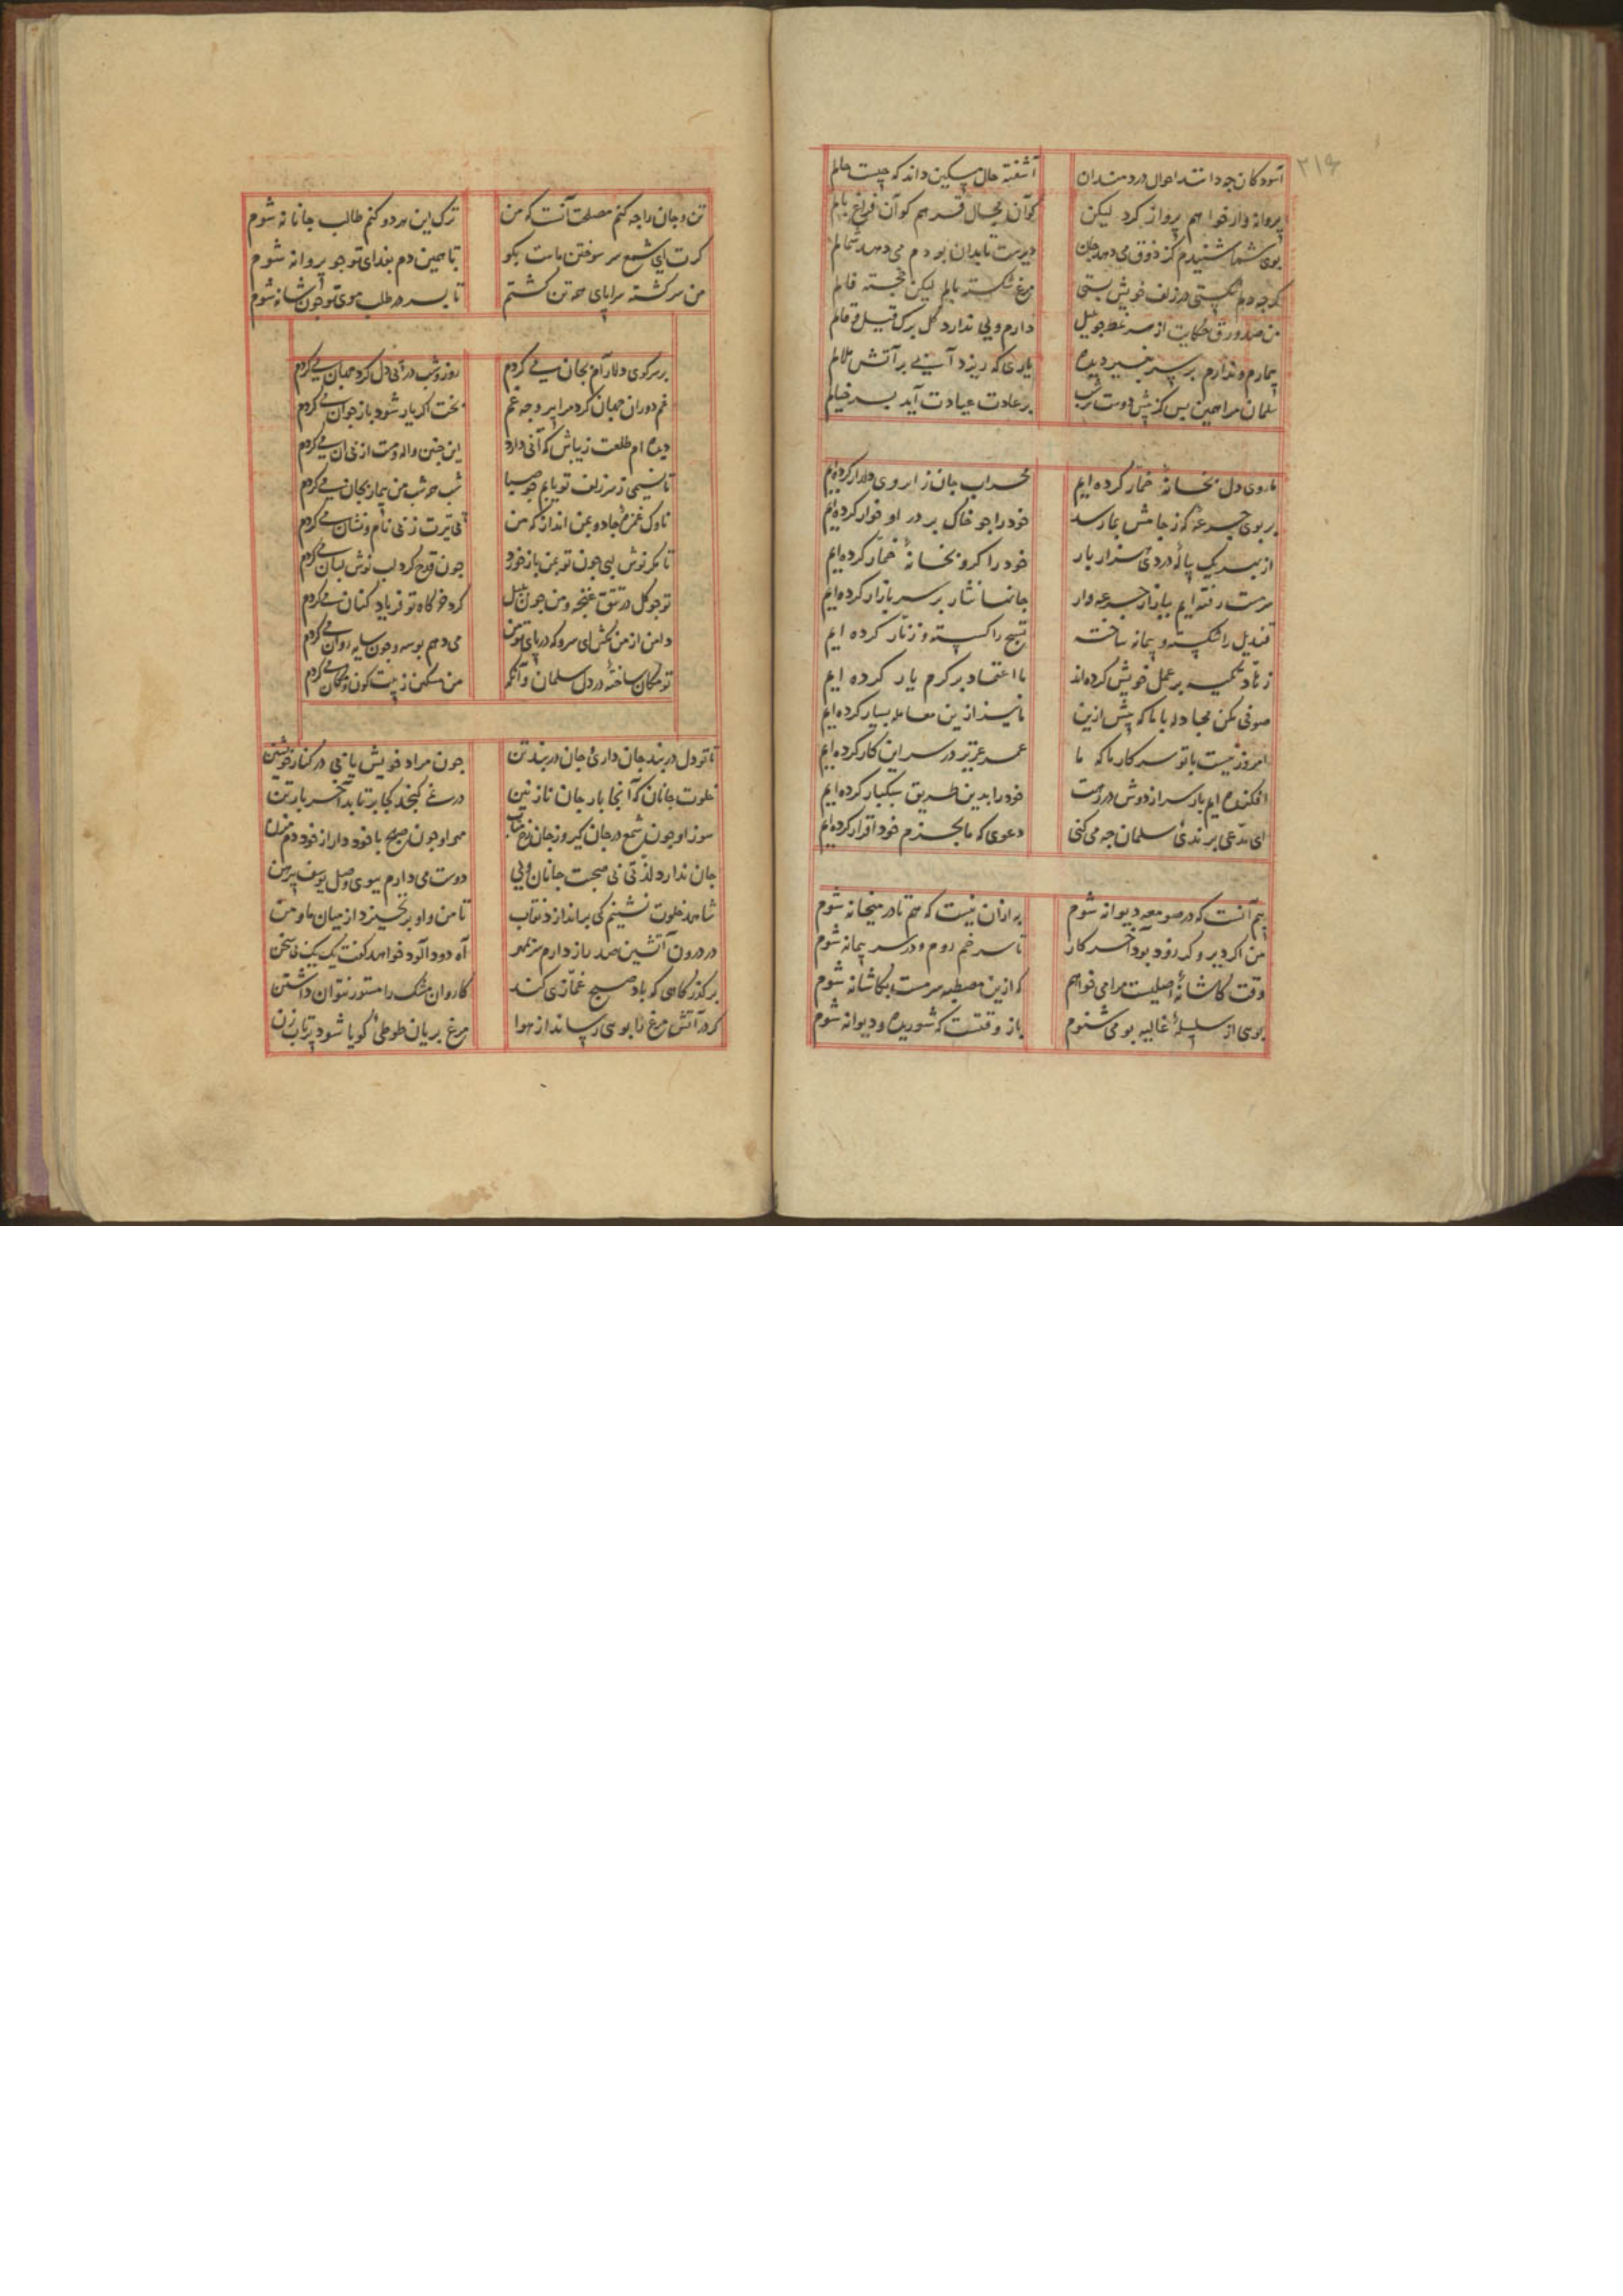 ۳۱۶
آسودگان چه دانند احوال دردمندان آشفته حال مسکین داند که چیست حالم
پروانه وار خواهم پرواز کرد لیکن کو آن مجال قدرهم کو آن فراغ بالم
بوی شما شنیدم کز ذوق می دهد جان دیرست تا بدان بو دم می دهد شمالم
گرچه دلم شکستی در زلف خویش بستی مرغ شکسته بالم لیکن خجسته فالم
من صد ورق حکایت از سر غصه چو بلبل دارم ولی ندارد گل برگ قیل و قالم
بیمارم و ندارم بر سر بجز دیده یاری که ریزد آبی بر آتش ملالم
سلمان مرا همین بس کز پیش دوست هر شب بر عادت عیادت آید بسر خیالم
ما روی دل بخانهٔ خمار کرده ایم محراب جان ز ابروی دلدار کرده ایم
بر بوی جرعهٔ که ز جامش بما رسد خود را چو خاک بر در او خوار کرده ایم
از بهر یک پیالهٔ دردی هزار بار خود را گرو بخانهٔ خمار کرده ایم
سرمست رفته ایم ببازار جرعه وار جانها نثار بر سر بازار کرده ایم
قندیل را شکسته و پیمانه ساخته تسبیح را گسسته و زنار کرده ایم
زهاد تکیه بر عمل خویش کرده اند ما اعتماد بر کرم یار کرده ایم
صوفی مکن مجادله با ما که پیش ازین ما نیز ازین معامله بسیار کرده ایم
امروز نیست با تو سر کار ما که ما عمر عزیز در سر این کار کرده ایم
افکنده ایم بار سر از دوش در رهت خود را بدین طریق سبکبار کرده ایم
ای مدعی برندی سلمان چه می کنی دعوی که ما بجرم خود اقرار کرده ایم
بیم آنست که در صومعه دیوانه شوم به ازان نیست که هم با در میخانه شوم
من اگر دیر و گر زود بود آخر کار تا سر خم روم و در سر پیمانه شوم
وقت کاشانهٔ اصلیست مرا می خواهم که ازین مصطبه سرمست بکاشانه شوم
بوی از سلسلهٔ غالیه بو می شنوم باز وقتست که شوریده و دیوانه شوم
تن و جان را چه کنم مصلحت آنست که من ترک این هر دو کنم طالب جانانه شوم
گرت ای شمع سر سوختن ماست بگو تا همین دم بفدای تو چو پروانه شوم
من سرگشته سراپای همه تن گشتم تا بسر در طلب موی تو چون شانه شوم
بر سر کوی دلارام بجان می گردم روز و شب در پی دل گرد جهان می گردم
غم دوران جهان کرد مرا پیر و چه غم بخت اگر یار شود باز جوان می گردم
دیده ام طلعت زیباش که آنی دارد این چنین واله و مست از پی آن می گردم
تا نسیمی ز سر زلف تو یابم چو صبا شب همه شب من بیمار بجان می گردم
ناوک غمزهٔ جادو بمن انداز که من پی تیرت ز پی نام و نشان می گردم
تا مگر نوش لبی چون تو بمن باز خورد چون قدح گرد لب نوش لبان می گردم
تو چو گل در تتق غنچه و من چون بلبل گرد خرگاه تو فریاد کنان می گردم
دامن از من مکش ای سرو که در پای تو من می دهم بوسه و چون سایه روان می گردم
تو مکان ساختهٔ در دل سلمان وانگه من مسکین ز پیت کون و مکان می گردم
تا تو دل در بند جان داری و جان در بند تن چون مراد خویش یابی در کنار خویشتن
خلوت جانان که آنجا بار جان نازنین در نمی گنجد کجا برتابد آخر بار تن
سوز او چون شمع در جان گیر و ز جان رخ متاب مهر او چون صبح با خود دار و از خود دم مزن
جان ندارد لذتی بی صحبت جانان ولی دوست می دارم ببوی وصل یوسف پیرهن
شاهد خلوت نشینم کی براندازد نقاب تا من و او برنخیزد از میان ما و من
در درون آتشین صد راز دارم سر بمهر آه دود آلود خواهد گفت یک یک بی سخن
بر گذرگاهی که باد صبح غمازی کند کاروان مشک را مستور نتوان داشتن
گر در آتش مرغ را بوی رساند از هوا مرغ بریان طوطی گویا شود بر بابزن